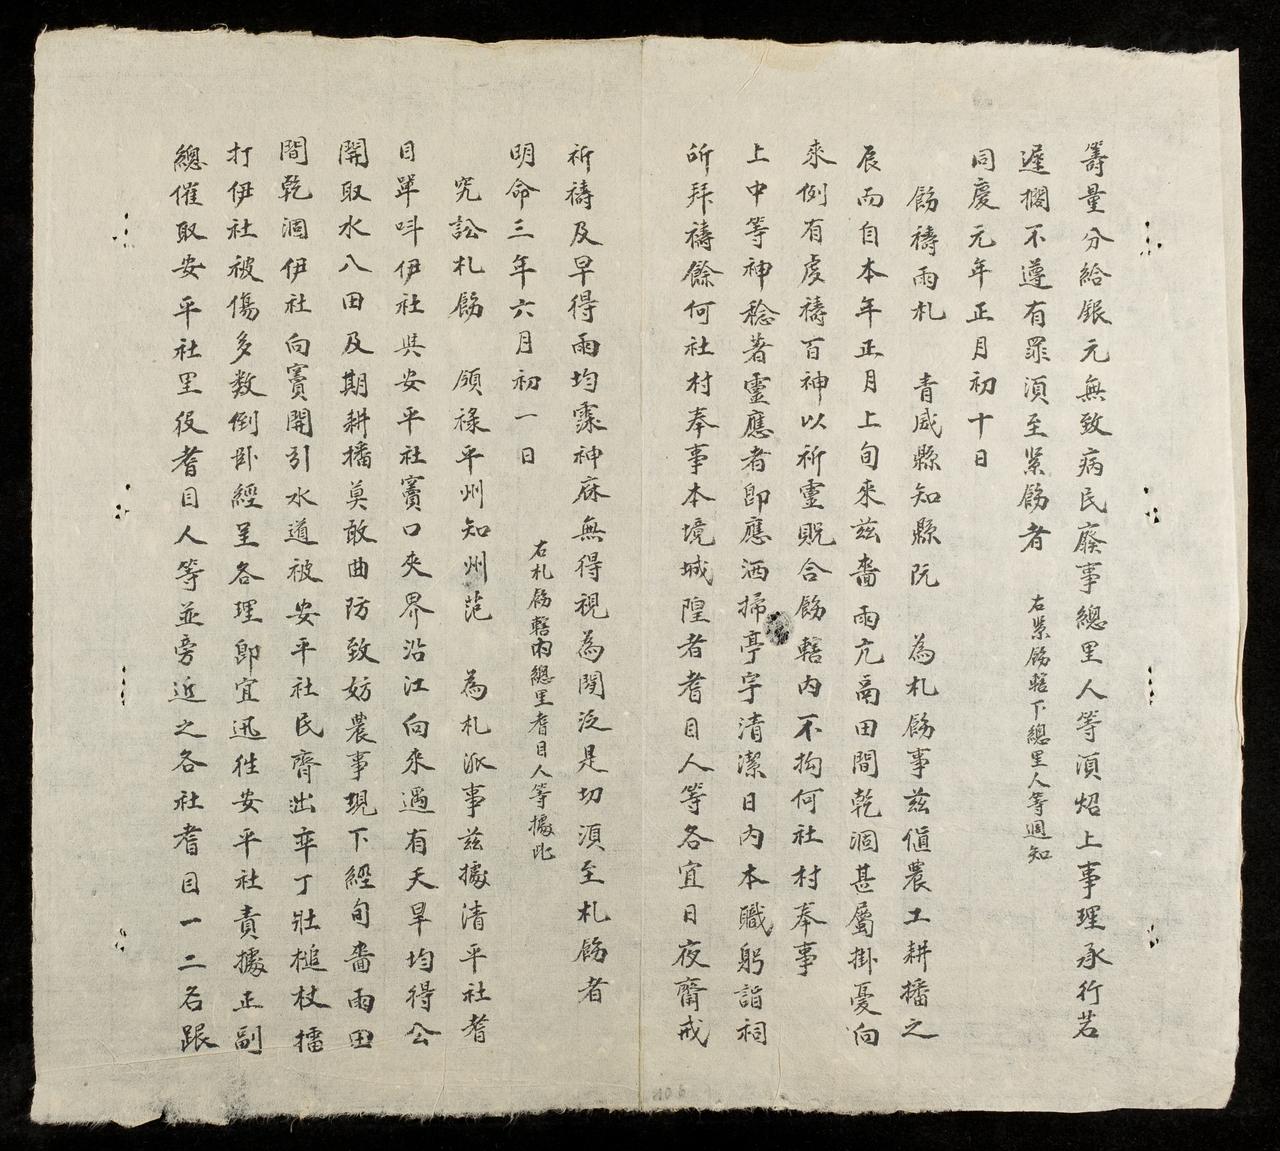 籌量分給銀元無致病民廢事總里人等湏炤上事理承行若
遲擱不遵有罪湏至柴飭者 右柴飭轄下總里人等週知
同慶元年正月初十日
飭禱雨札 青威縣知縣阮 為札飭事茲值農工耕播之
辰而自本年正月上旬來茲嗇雨亢鬲田間乾涸甚屬掛憂向
來例有虔禱百神以祈靈貺合飭轄內不拘何社村奉事
上中等神稔著靈應者即應洒掃亭宇清潔日內本職躬詣祠
所拜禱餘何社村奉事本境城隍者耆目人等各宜日夜齋戒
祈禱及早得雨均霑神庥無得視為閒泛是切湏至札飭者
明命三年六月初一日 右札飭轄內總里耆目人等據此
究訟札飭 領祿平州知州范 為札派事茲據清平社耆
目單呌伊社與安平社竇口夾界沿江向來遇有天旱均得公
開取水八田及期耕播莫敢曲防致妨農事現下經旬嗇雨田
間乾涸伊社向竇開引水道被安平社民齊出率丁壯槌杖擂
打伊社被傷多数倒卧經呈各理即宜迅徃安平社責據正副
總催取安平社里役耆目人等並旁近之各社耆目一二名跟